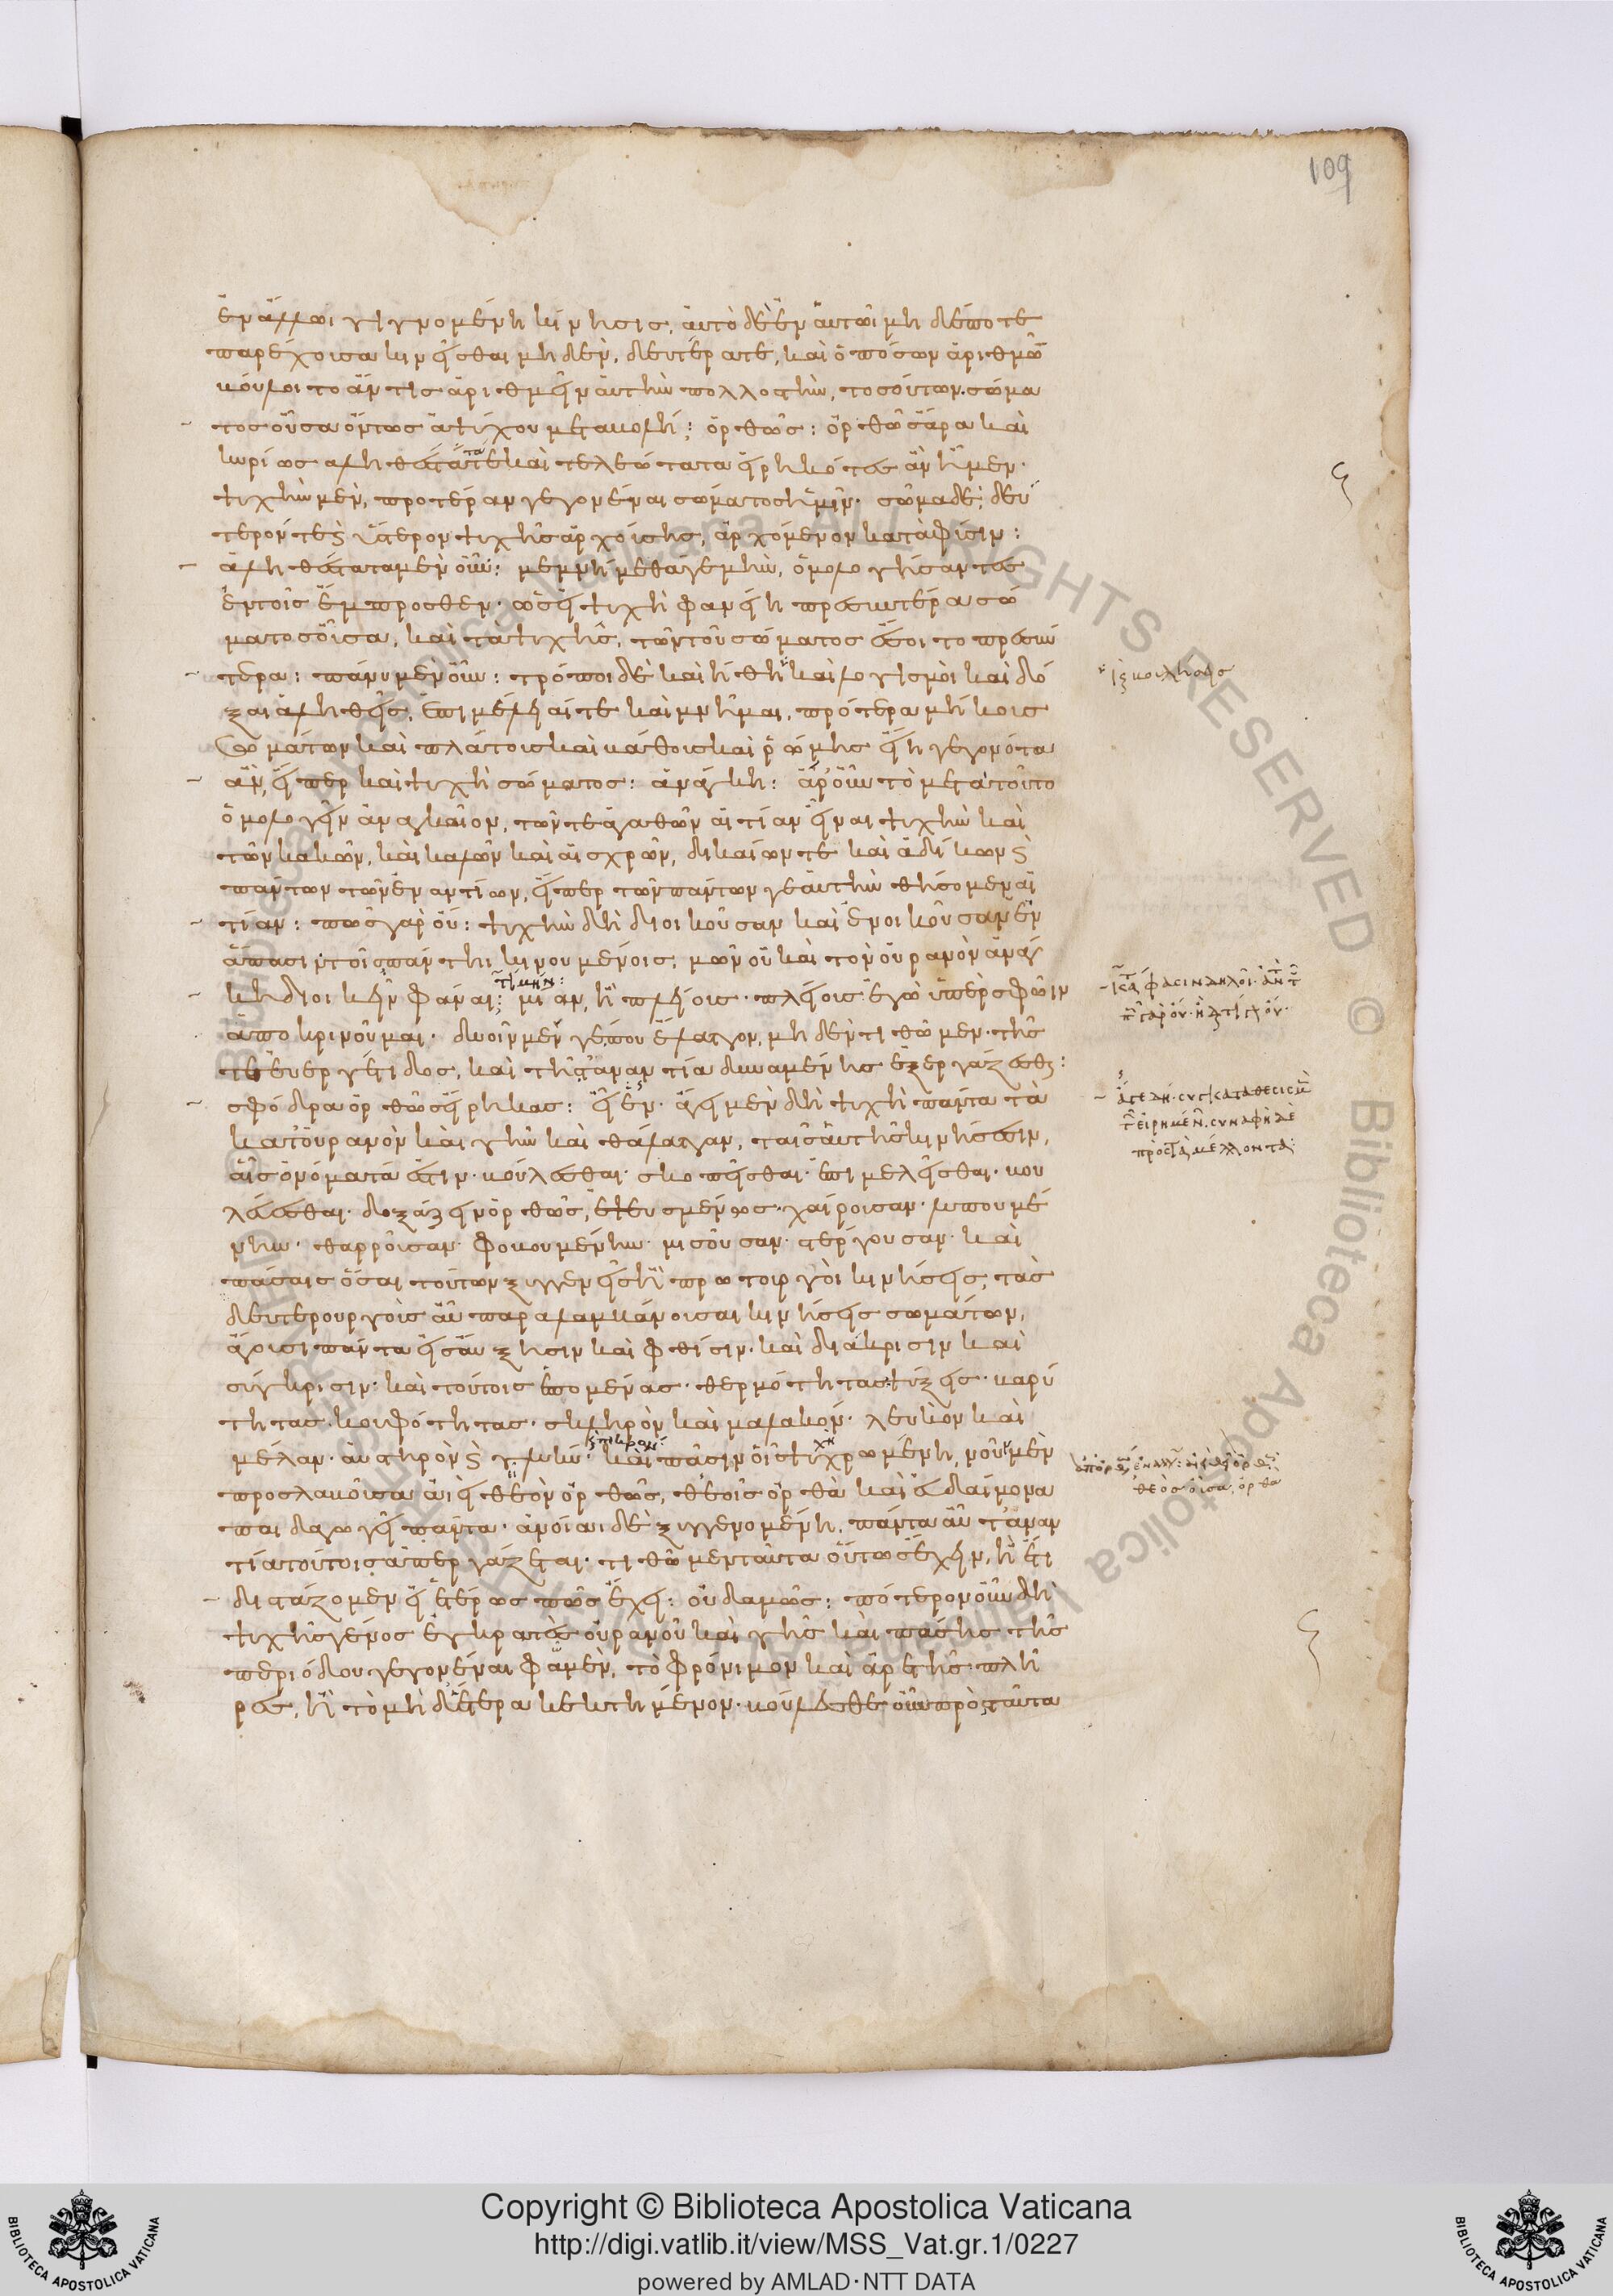 109
ἐν ἄλλωι γιγνομένη κίνησις, αὐτὸ δὲ ἐν αὑτῶι μηδέποτε
παρέχουσα κινεῖσθαι μηδὲν, δευτέρα τε, καὶ ὁπόσων ἀριθμῶν
βούλοιτο ἄν τις ἀριθμεῖν αὐτὴν πολλοστὴν, τοσούτων· σώμα
τος οὖσα ὄντως ἀψύχου μεταβολή; ὀρθῶς: ὀρθῶς ἄρα καὶ
κυρίως ἀληθέστατά τε καὶ τελεώτατα εἰρηκότες ἂν ἦμεν·
ψυχὴν μὲν, προτέραν γεγονέναι σώματος ἡμῖν· σῶμα δὲ, δεύ
τερόν τε καὶ ὕστερον ψυχῆς ἀρχούσης, ἀρχόμενον κατὰ φύσιν:
ἀληθέστατα μὲν οὖν: μεμνήμεθά γε μὴν, ὁμολογήσαντες
ἐν τοῖς ἔμπροσθεν· ὡς εἰ ψυχὴ φανείη πρεσβυτέρα σώ
ματος οὖσα, καὶ τὰ ψυχῆς, τῶν τοῦ σώματος ἔσοιτο πρεσβύ
τερα: πάνυ μὲν οὖν: τρόποι δὲ καὶ ἤθη καὶ λογισμοὶ καὶ δό
ξαι ἀληθεῖς, ἐπιμέλειαί τε καὶ μνῆμαι, πρότερα μήκους
σωμάτων καὶ πλάτους καὶ βάθους καὶ ῥώμης εἴη γεγονότα
ἂν, εἴπερ καὶ ψυχὴ σώματος: ἀνάγκη: ἆρ' οὖν τὸ μετὰ τοῦτο
ὁμολογεῖν ἀναγκαῖον, τῶν τε ἀγαθῶν αἰτίαν εἶναι ψυχὴν καὶ
τῶν κακῶν, καὶ καλῶν καὶ αἰσχρῶν, δικαίων τε καὶ ἀδίκων καὶ
πάντων τῶν ἐναντίων, εἴπερ τῶν πάντων γε αὐτὴν θήσομεν αἰ
τίαν: πῶς γὰρ οὔ: ψυχὴν δὴ διοικοῦσαν καὶ ἐνοικοῦσαν ἐν
ἅπασι τοῖς πάντηι κινουμένοις, μῶν οὐ καὶ τὸν οὐρανὸν ἀνάγ
κη διοικεῖν φάναι; τί μήν: μίαν, ἢ πλείους· πλείους ἐγὼ ὑπὲρ σφῶιν
ἀποκρινοῦμαι· δυοῖν μέν γέ που ἔλαττον, μηδὲν τιθῶμεν· τῆς
τε εὐεργέτιδος, καὶ τῆς τἀναντία δυναμένης ἐξεργάζεσθαι:
σφόδρα ὀρθῶς εἴρηκας: εἶεν· ἄγει μὲν δὴ ψυχὴ πάντα τὰ
κατ' οὐρανὸν καὶ γῆν καὶ θάλατταν, ταῖς αὑτῆς κινήσεσιν,
αἷς ὀνόματά ἐστιν· βούλεσθαι· σκοπεῖσθαι· ἐπιμελεῖσθαι· βου
λεύεσθαι· δοξάζειν ὀρθῶς, ἐψευσμένως· χαίρουσαν· λυπουμέ
νην· θαρροῦσαν· φοβουμένην· μισοῦσαν· στέργουσαν· καὶ
πάσαις ὅσαι τούτων ξυγγενεῖς ἢ πρωτουργοὶ κινήσεις, τὰς
δευτερουργοὺς αὖ παραλαμβάνουσαι κινήσεις σωμάτων,
ἄγουσι πάντα εἰς αὔξησιν καὶ φθίσιν· καὶ διάκρισιν καὶ
σύγκρισιν· καὶ τούτοις ἑπομένας· θερμότητας ψύξεις· βαρύ
τητας· κουφότητας· σκληρὸν καὶ μαλακόν· λευκὸν καὶ
μέλαν· αὐστηρὸν καὶ γλυκύ· καὶ πικρόν: καὶ πᾶσιν οἷς ψυχὴ χρωμένη, νοῦν μὲν
προσλαβοῦσα ἀεὶ θεὸν ὀρθῶς, θεοῖς ὀρθὰ καὶ εὐδαίμονα
παιδαγωγεῖ πάντα· ἀνοίαι δὲ ξυγγενομένη, πάντα αὖ τἀναν
τία τούτοις ἀπεργάζεται· τιθῶμεν ταῦτα οὕτως ἔχειν, ἢ ἔτι
διστάζομεν εἰ ἑτέρως πως ἔχει: οὐδαμῶς: πότερον οὖν δὴ
ψυχῆς γένος ἐγκρατὲς οὐρανοῦ καὶ γῆς καὶ πάσης τῆς
περιόδου γεγονέναι φαμὲν, τὸ φρόνιμον καὶ ἀρετῆς πλῆ
ρες, ἢ τὸ μὴ δέτερα κεκτημένον· βούλεσθε οὖν πρὸς ταῦτα
Copyright © Biblioteca Apostolica Vaticana
http://digi.vatlib.it/view/MSS_Vat.gr.1/0227
powered by AMLAD·NTT DATA
BIBLIOTECA APOSTOLICA VATICANA
BIBLIOTECA APOSTOLICA VATICANA